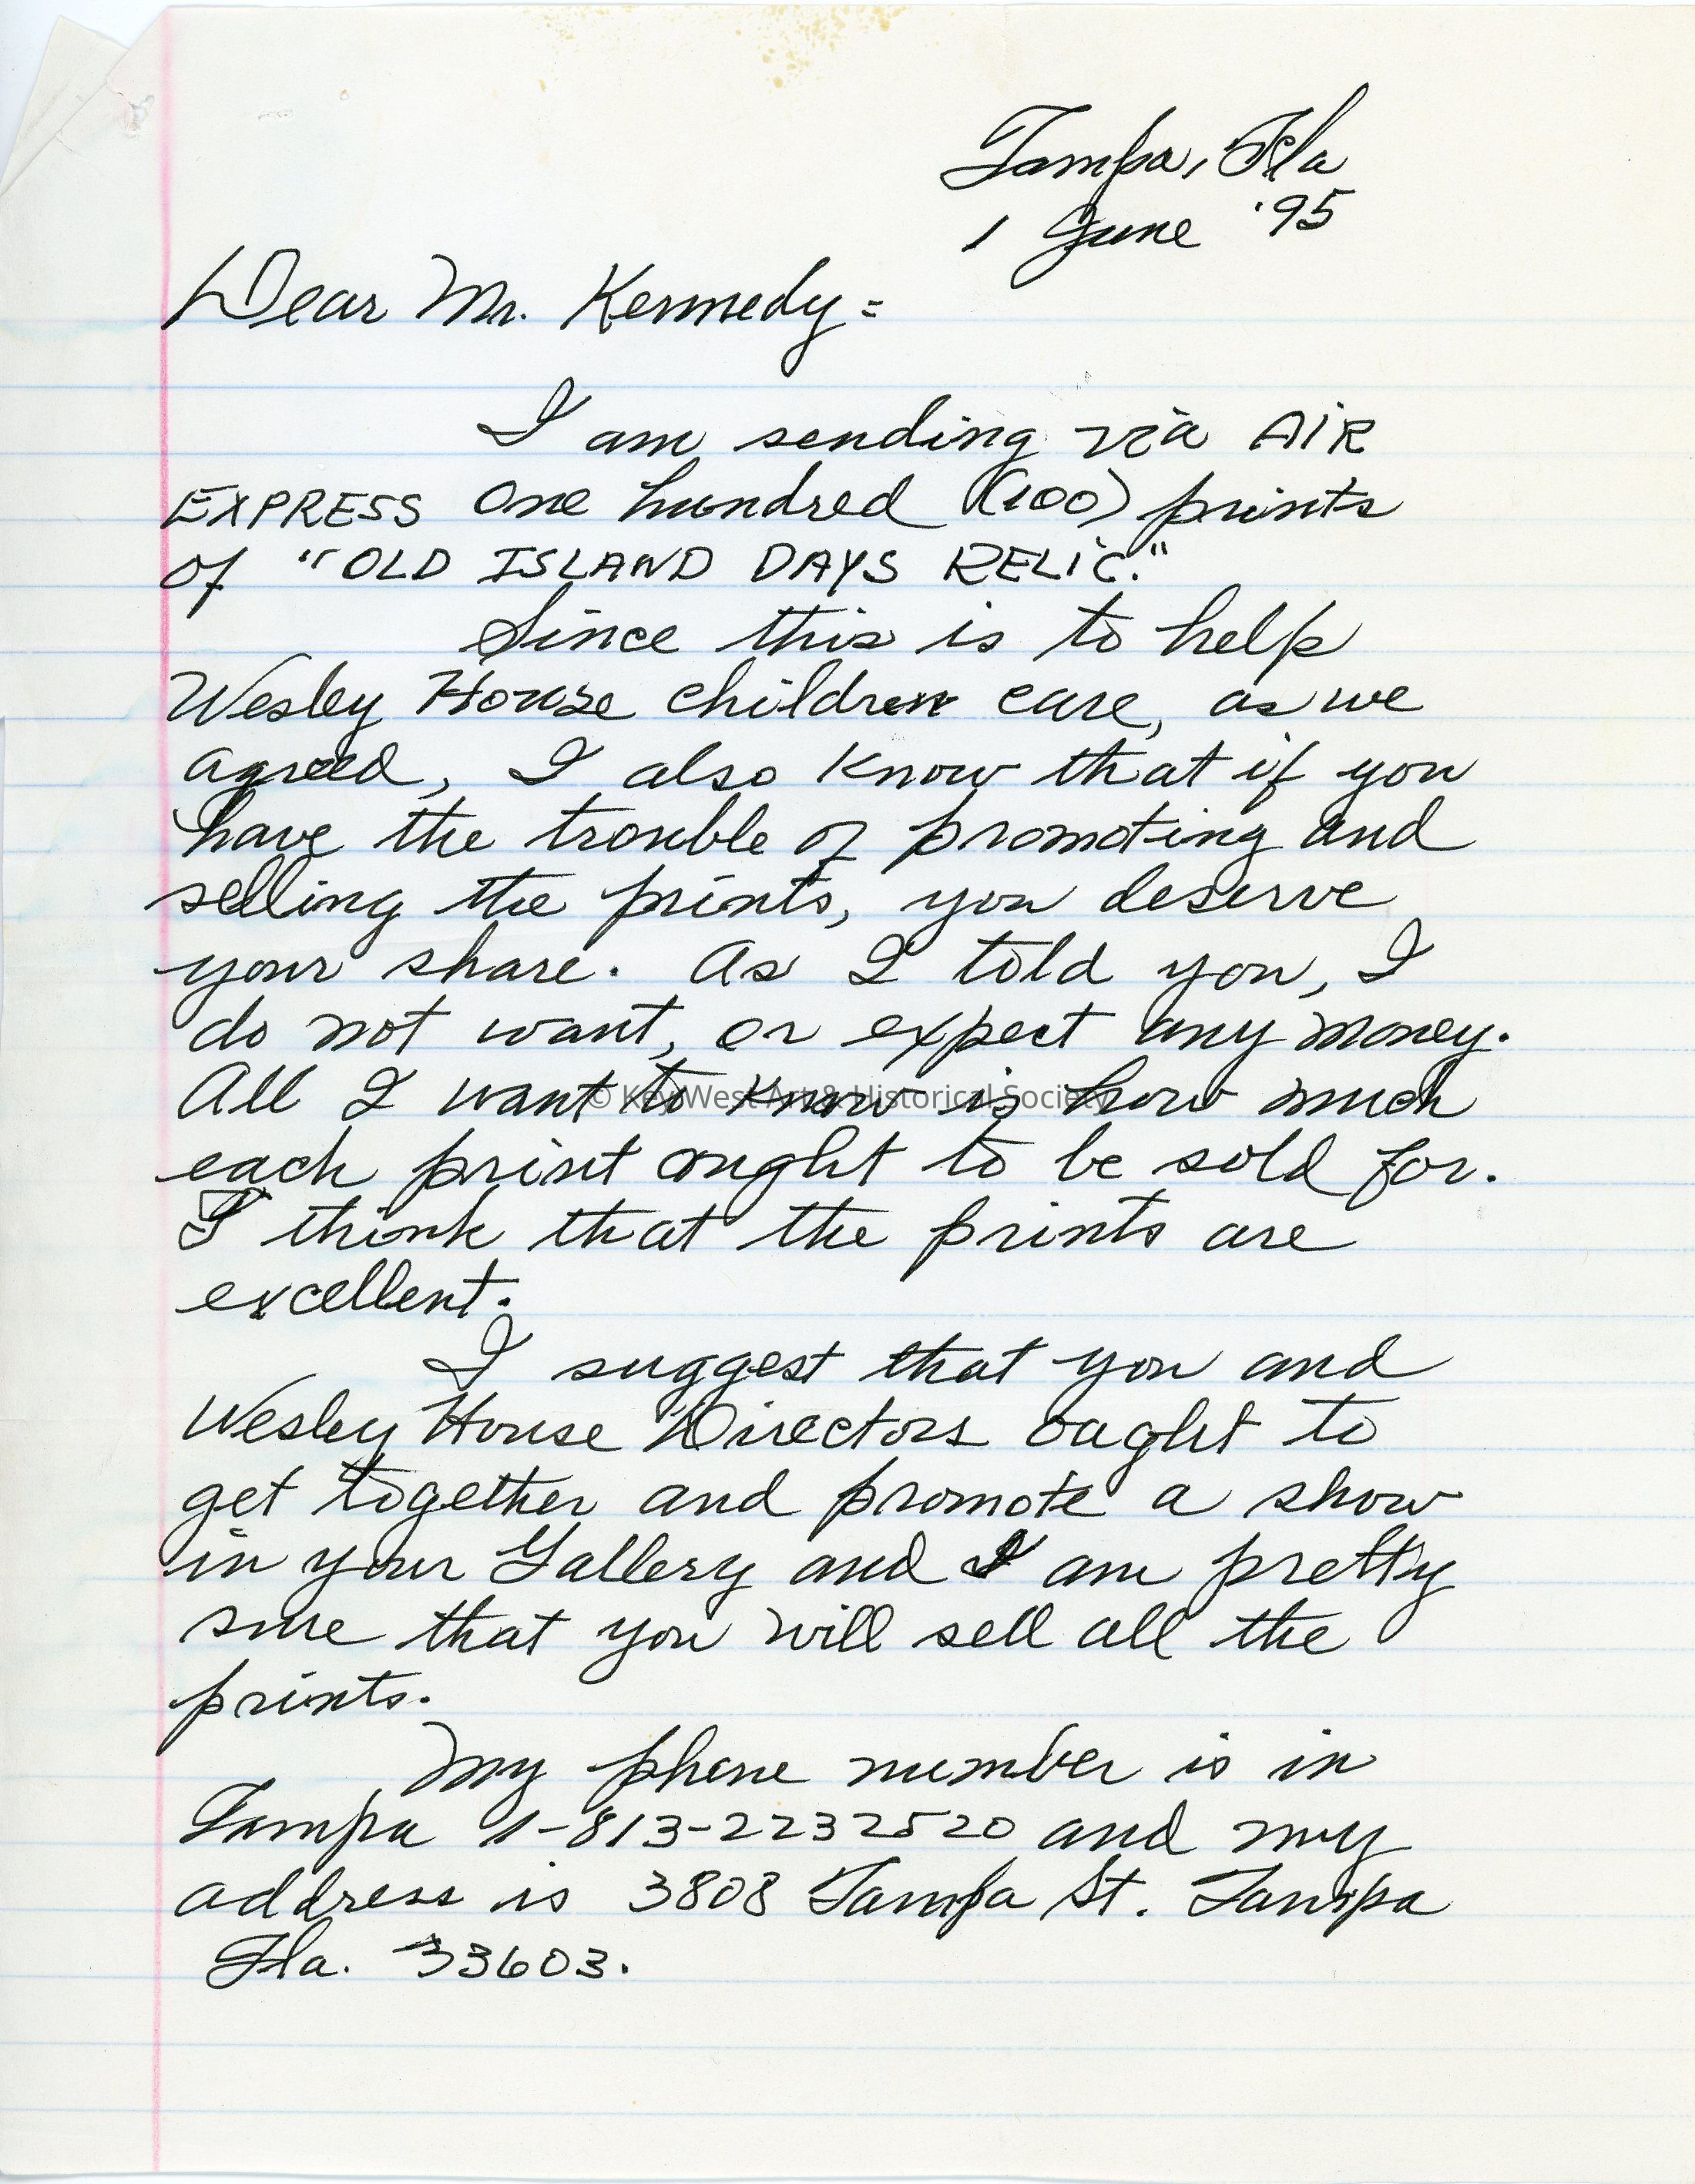 Tampa, Fla
1 June '95
Dear Mr. Kennedy =
I am sending via AIR
EXPRESS one hundred (100) prints
of "OLD ISLAND DAYS RELIC."
Since this is to help
Wesley House children care, as we
agreed, I also know that if you
have the trouble of promoting and
selling the prints, you deserve
your share. As I told you, I
do not want, or expect any money.
All I want to know is how much
© Key West Art & Historical Society
each print ought to be sold for.
I think that the prints are
excellent.
I suggest that you and
Wesley House Directors ought to
get together and promote a show
in your Gallery and I am pretty
sure that you will sell all the
prints.
My phone number is in
Tampa 1-813-2232520 and my
address is 3808 Tampa St. Tampa
Fla. 33603.